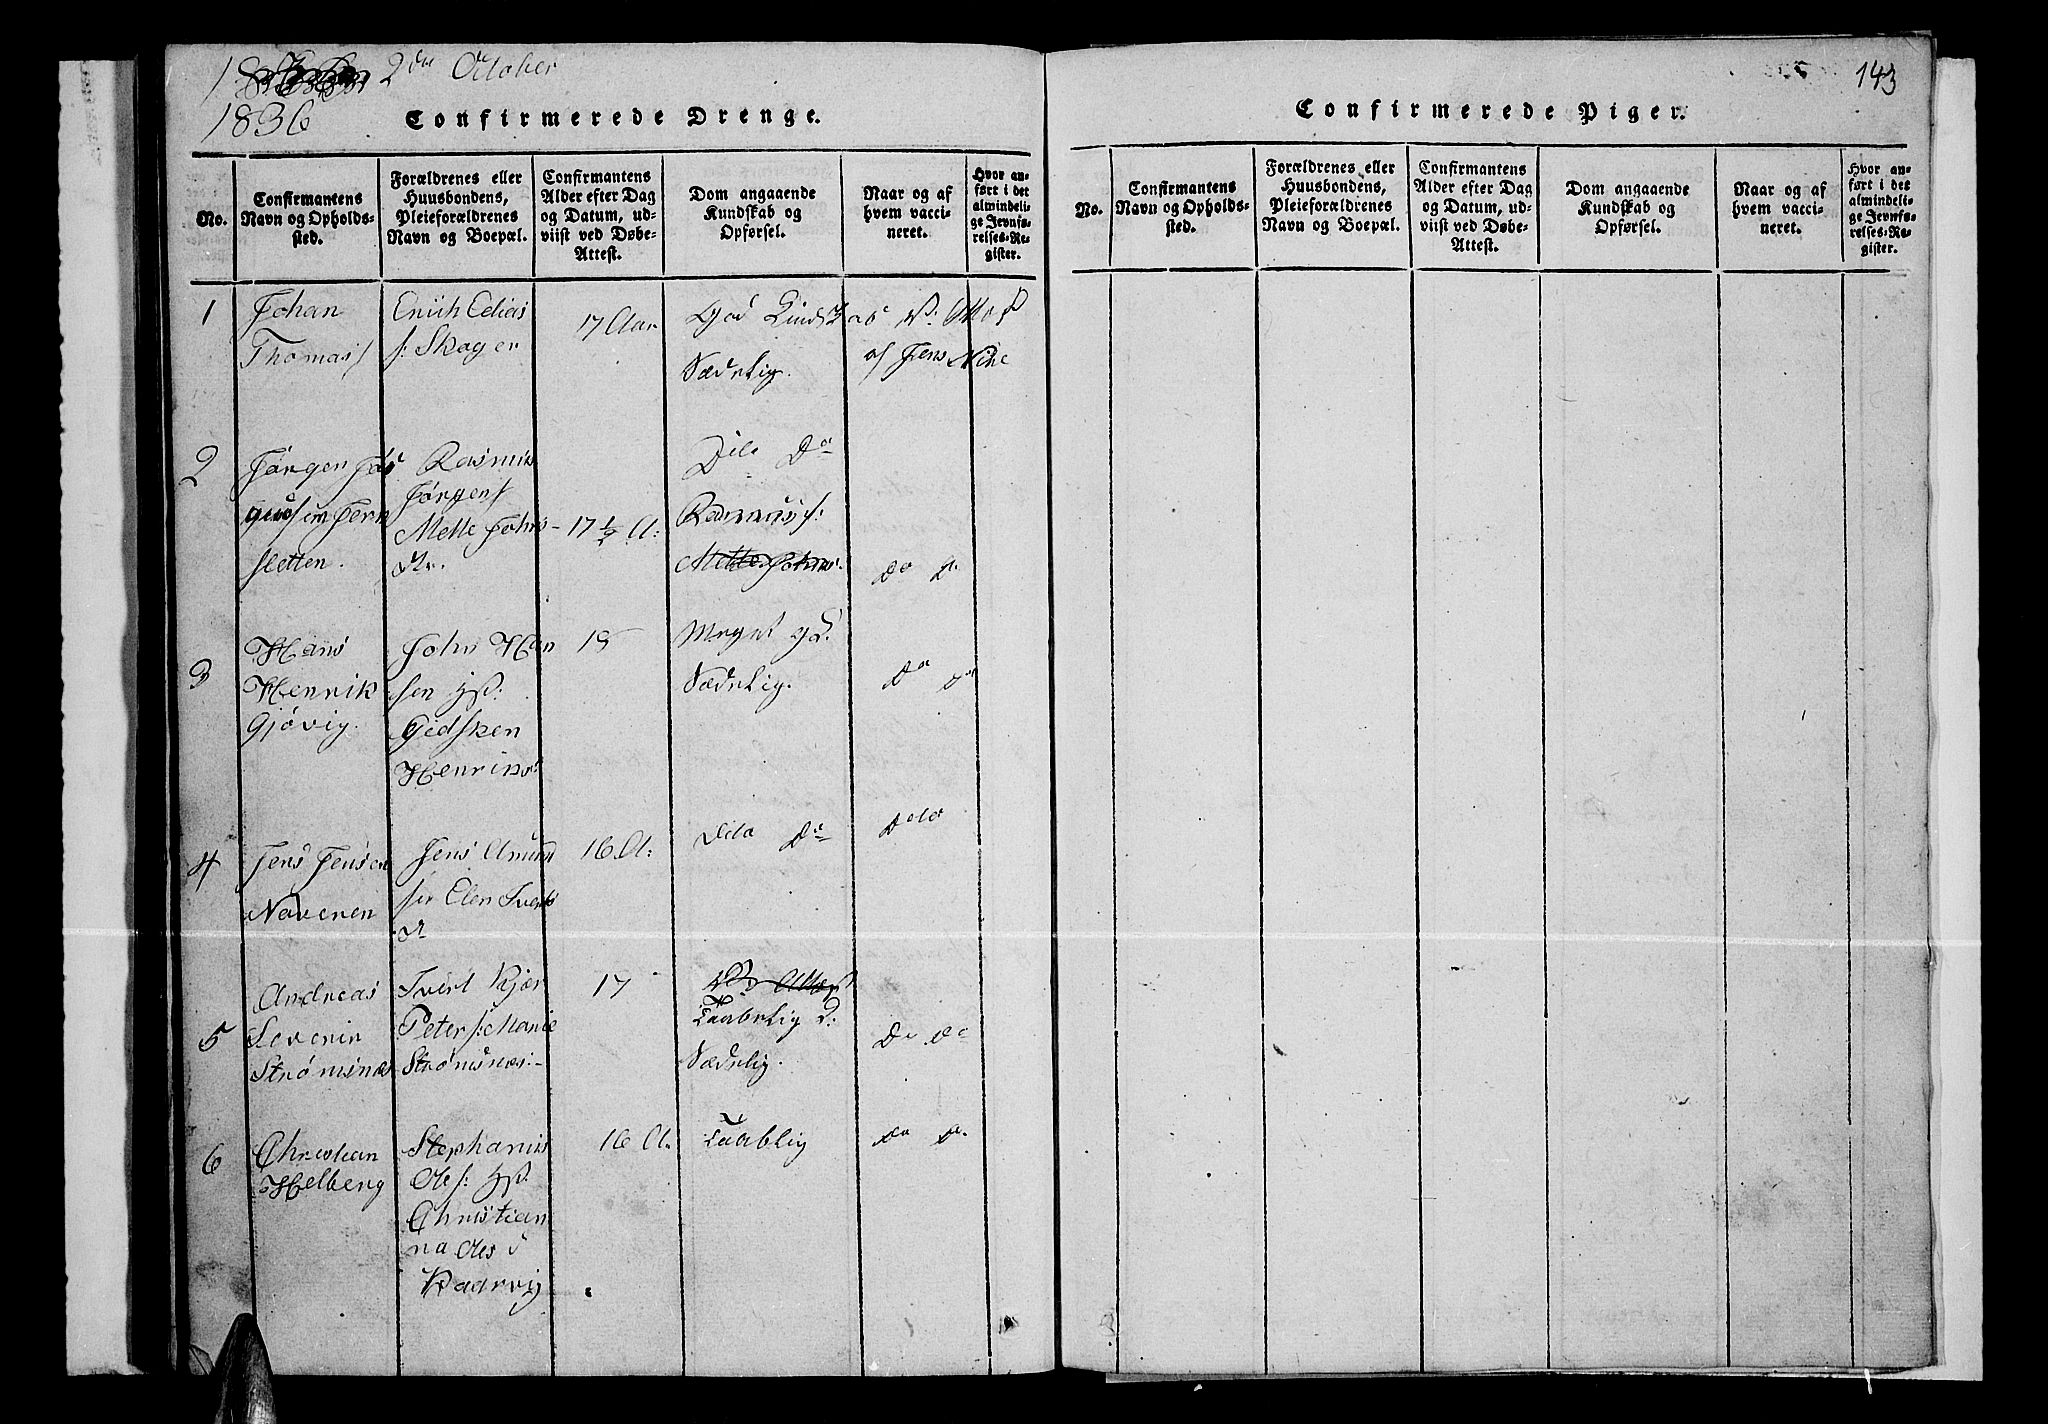 2den October
1836
Confirmerede Drenge.
No.
Confirmantens
Navn og Opholds-
sted.
Forældrenes eller
Huusbondens,
Pleieforældrenes
Navn og Boepæl.
Confirmantens
Alder efter Dag
og Datum, ud-
viist ved Døbe-
Attest.
Dom angaaende
Kundskab og
Opførsel.
Naar og af
hvem vacci-
neret.
Hvor an-
ført i det
almindeli-
ge Jevnfø-
relses-Re-
gister.
1
Johan
Thomas
Erich Elias
s: Skager
17 Aar
God Kundskab
Sædelig.
af Jens
2
Jørgen
sletten.
Rasmus
Jørgens
Mette Johns-
Dr.
17 1/2 A:
Dito Do
Rasmus:
Mette Johns:
do d
3
Hans
Henrik
Gjøvig.
John Han
sen
Gidsken
Henriks:
15
Meget gd:
Sædelig.
do do
4
Jens Jensen
Naveren
Jens Amund
sen Elen
D
16 A:
Dito Do
Dito
5
Andreas
Severin
Strømsnæs
Sivert
Peters: Marie
Strømsnæs:-
17
Taabelig d:
Sædelig.
Do do
6
Christian
Helberg
Stephanus
Oles:
Christian
na Oles
16 A.
Taablig
do d.
143
Confirmerede Piger.
No.
Confirmantens
Navn og Opholds-
sted.
Forældrenes eller
Huusbondens,
Pleieforældrenes
Navn og Boepæl.
Confirmantens
Alder efter Dag
og Datum, ud-
viist ved Døbe-
Attest.
Dom angaaende
Kundskab og
Opførsel.
Naar og af
hvem vacci-
neret.
Hvor an-
ført i det
almindeli-
ge Jevnfø-
relses-Re-
gister.